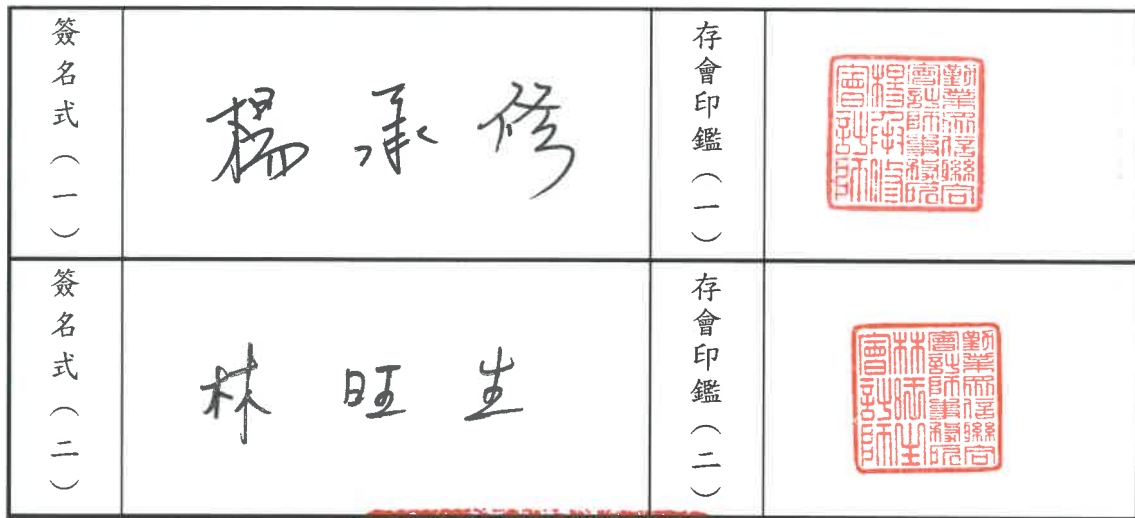 簽名式（一）
楊承修
存會印鑑（一）
勤業眾信聯合
會計師事務所
楊承修
會計師
簽名式（二）
林旺生
存會印鑑（二）
勤業眾信聯合
會計師事務所
林旺生
會計師